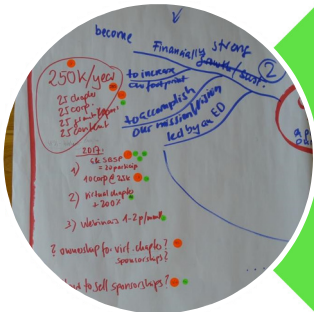 become
Financially strong
growth/sust.
2
to increase
our footprint
to accomplish
our mission/vision
led by an ED
250k/year
25 chapter
25 corp.
25
25
2017:
= 20 particip
1)
10 corp @ 2.5k
2) Virtual chapter
+ 200%
3) Webinars 1-2 p/month
? ownership for virt. chapter?
sponsorships?
to sell sponsorships?